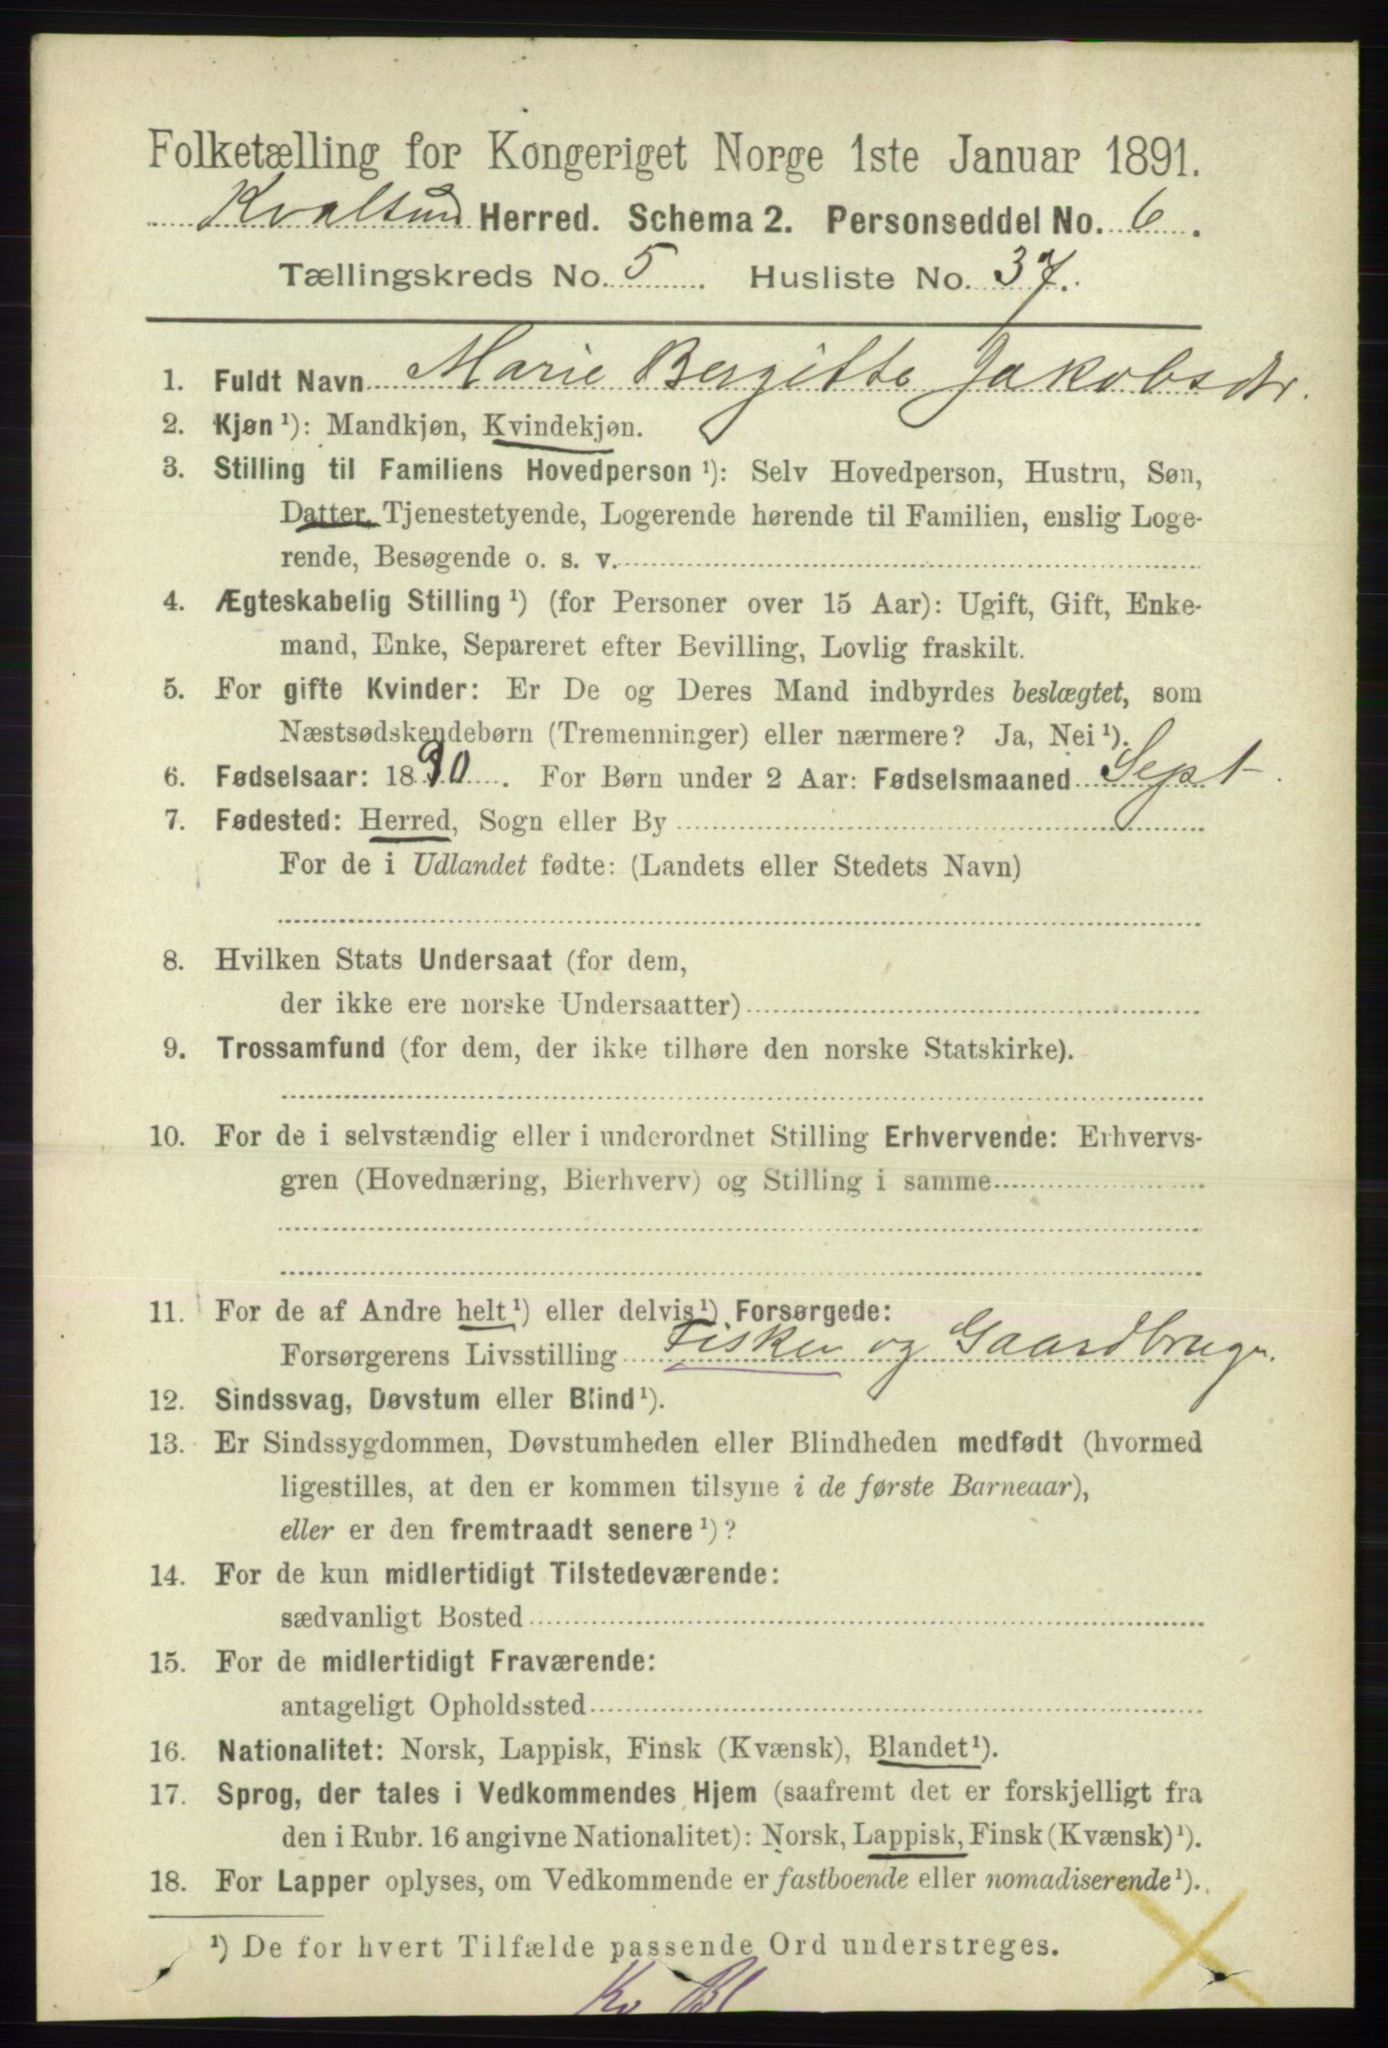 Folketælling for Kongeriget Norge 1ste Januar 1891.
Kvalsund Herred. Schema 2. Personseddel No. 6.
Tællingskreds No. 5. Husliste No. 37.
1. Fuldt Navn Marie Bergitte Jakobsdtr.
2. Kjøn¹): Mandkjøn, Kvindekjøn.
3. Stilling til Familiens Hovedperson¹): Selv Hovedperson, Hustru, Søn,
Datter, Tjenestetyende, Logerende hørende til Familien, enslig Loge-
rende, Besøgende o. s. v.
4. Ægteskabelig Stilling¹) (for Personer over 15 Aar): Ugift, Gift, Enke-
mand, Enke, Separeret efter Bevilling, Lovlig fraskilt.
5. For gifte Kvinder: Er De og Deres Mand indbyrdes beslægtet, som
Næstsødskendebørn (Tremenninger) eller nærmere? Ja, Nei¹).
6. Fødselsaar: 1890. For Børn under 2 Aar: Fødselsmaaned Sept.
7. Fødested: Herred, Sogn eller By
For de i Udlandet fødte: (Landets eller Stedets Navn)
8. Hvilken Stats Undersaat (for dem,
der ikke ere norske Undersaatter)
9. Trossamfund (for dem, der ikke tilhøre den norske Statskirke).
10. For de i selvstændig eller i underordnet Stilling Erhvervende: Erhvervs-
gren (Hovednæring, Bierhverv) og Stilling i samme
11. For de af Andre helt¹) eller delvis¹) Forsørgede:
Forsørgerens Livsstilling Fisker og Gaardbruger.
12. Sindssvag, Døvstum eller Blind¹).
13. Er Sindssygdommen, Døvstumheden eller Blindheden medfødt (hvormed
ligestilles, at den er kommen tilsyne i de første Barneaar),
eller er den fremtraadt senere¹)?
14. For de kun midlertidigt Tilstedeværende:
sædvanligt Bosted
15. For de midlertidigt Fraværende:
antageligt Opholdssted
16. Nationalitet: Norsk, Lappisk, Finsk (Kvænsk), Blandet¹).
17. Sprog, der tales i Vedkommendes Hjem (saafremt det er forskjelligt fra
den i Rubr. 16 angivne Nationalitet): Norsk, Lappisk, Finsk (Kvænsk)¹).
18. For Lapper oplyses, om Vedkommende er fastboende eller nomadiserende¹).
¹) De for hvert Tilfælde passende Ord understreges.
Kv Bl